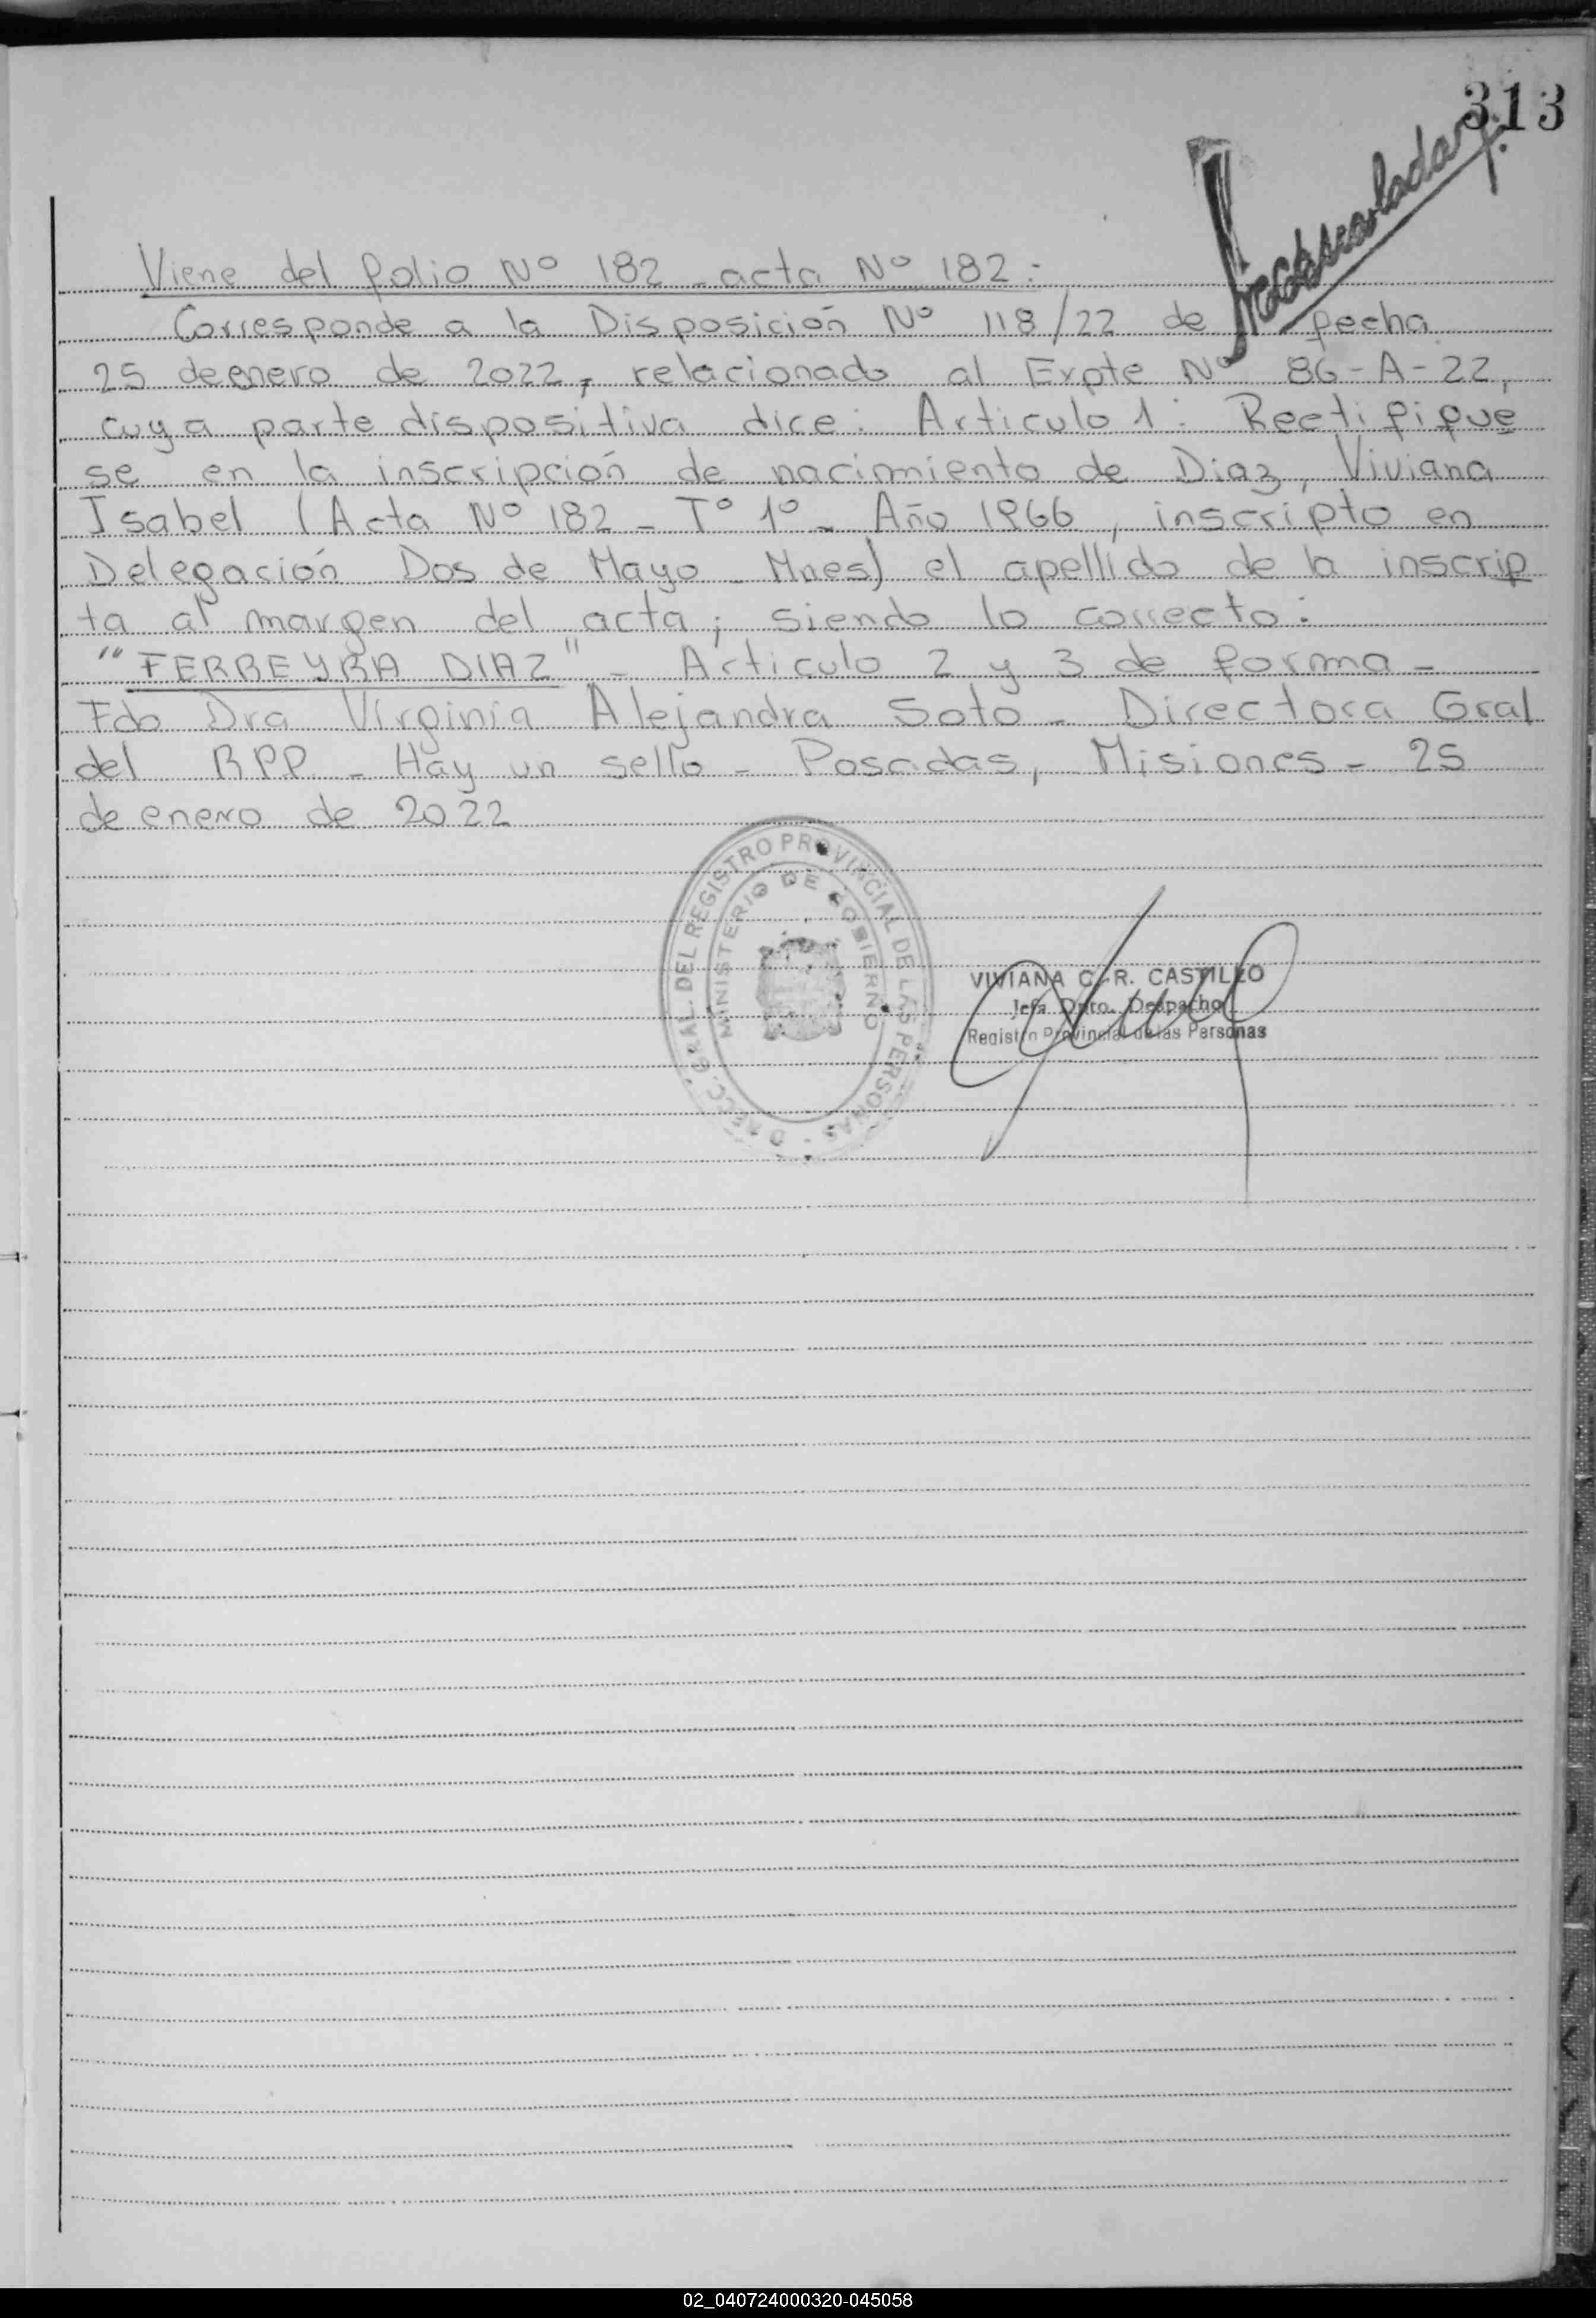 313
Viene del folio Nº 182 - acta Nº 182:
Corresponde a la Disposición Nº 118/22 de fecha
25 de enero de 2022, relacionado al Expte Nº 86-A-22,
cuya parte dispositiva dice: Articulo 1: Rectifique
se en la inscripción de nacimiento de Diaz, Viviana
Isabel (Acta Nº 182 - Tº 1º - Año 1966, inscripto en
Delegación Dos de Mayo - Mnes) el apellido de la inscrip
ta al margen del acta; siendo lo correcto:
"FERREYRA DIAZ" - Articulo 2 y 3 de forma -
Fdo Dra Virginia Alejandra Soto - Directora Gral
del RPP - Hay un sello - Posadas, Misiones - 25
de enero de 2022
DIRECC. GRAL. DEL REGISTRO PROVINCIAL DE LAS PERSONAS -
MINISTERIO DE GOBIERNO
VIVIANA C. R. CASTILLO
Jefa Dpto. Despacho
Registro Provincial de las Personas
02_040724000320-045058